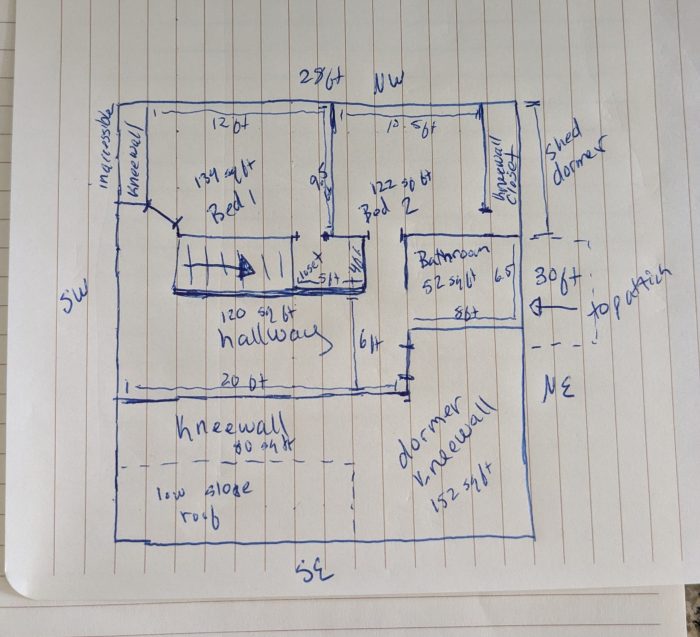 28ft NW
inaccessible
kneewall
12ft
134 sq ft
Bed 1
9.5
122 sq ft
Bed 2
kneewall
closet
shed
dormer
closet
5ft
4ft
Bathroom
52 sq ft
6.5
8ft
30ft
SW
120 sq ft
hallway
6 ft
20 ft
NE
kneewall
80 sq ft
dormer
kneewall
152 sq ft
low slope
roof
SE